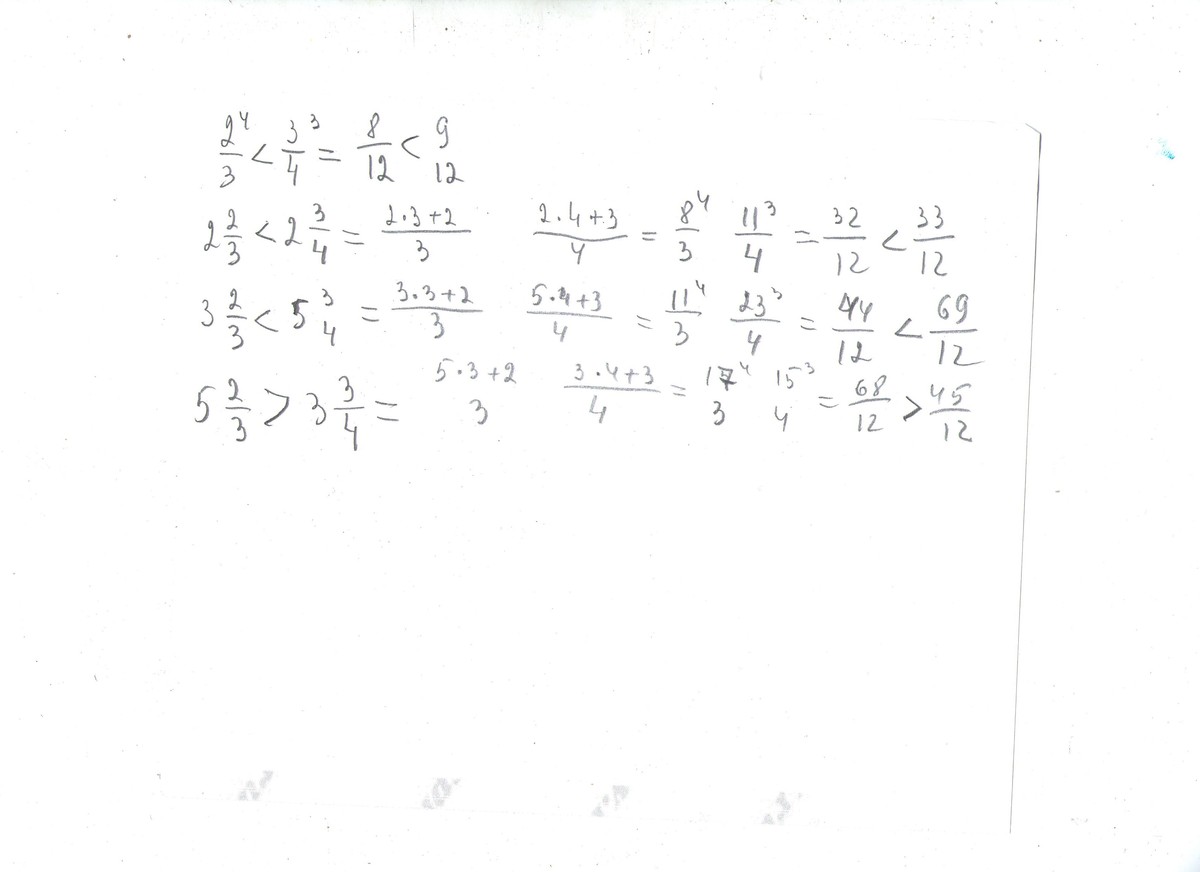 2⁴/3 < 3³/4 = 8/12 < 9/12
2 2/3 < 2 3/4 = 2·3+2/3 2·4+3/4 = 8⁴/3 11³/4 = 32/12 < 33/12
3 2/3 < 5 3/4 = 3·3+2/3 5·4+3/4 = 11⁴/3 23³/4 = 44/12 < 69/12
5 2/3 > 3 3/4 = 5·3+2/3 3·4+3/4 = 17⁴/3 15³/4 = 68/12 > 45/12